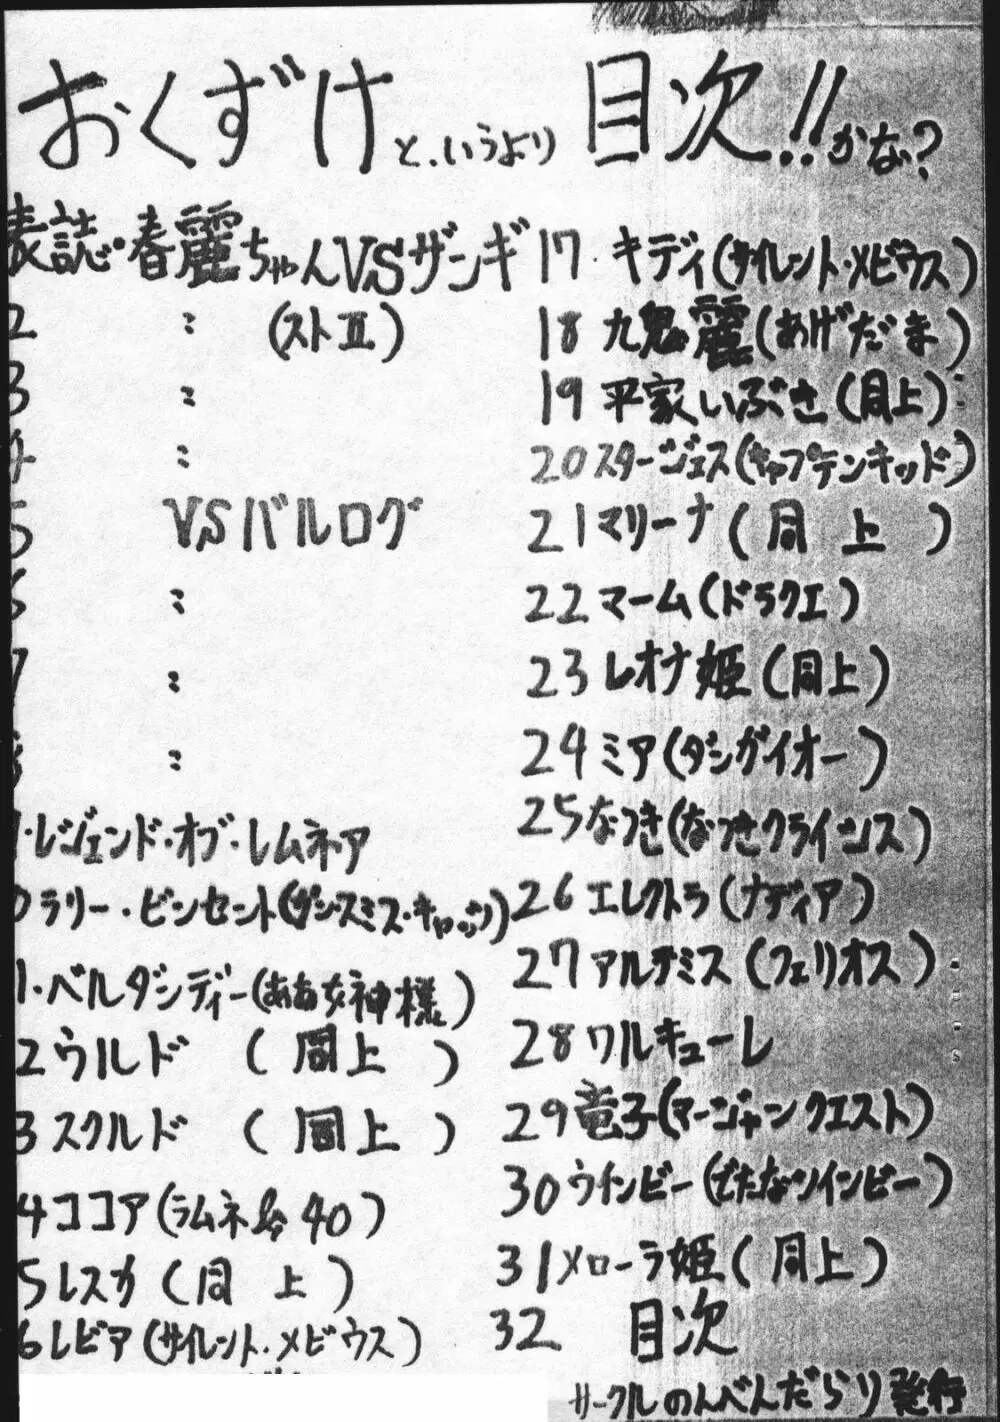 おくずけというより目次!!かな?
表誌・春麗ちゃんVSザンギ
2 〃 (ストⅡ)
3 〃
4 〃
5 VSバルログ
6 〃
7 〃
8 〃
・レジェンド・オブ・レムネア
0ラリー・ビンセント(ガンスミス・キャッツ)
1・ベルダンディー(ああ女神様)
2ウルド (同上)
3スクルド (同上)
4ココア(ラムネ&40)
5レスカ(同上)
6レビア(サイレント・メビウス)
17・キディ(サイレント・メビウス)
18九鬼麗(あげだま)
19平家いぶき(同上)
20スタージェス(キャプテンキッド)
21マリーナ(同上)
22マーム(ドラクエ)
23レオナ姫(同上)
24ミア(ダンガイオー)
25なつき(なつきクライシス)
26エレクトラ(ナディア)
27アルテミス(フェリオス)
28ワルキューレ
29竜子(マージャンクエスト)
30ウインビー(でたなツインビー)
31メローラ姫(同上)
32 目次
サークルのんべんだらり発行